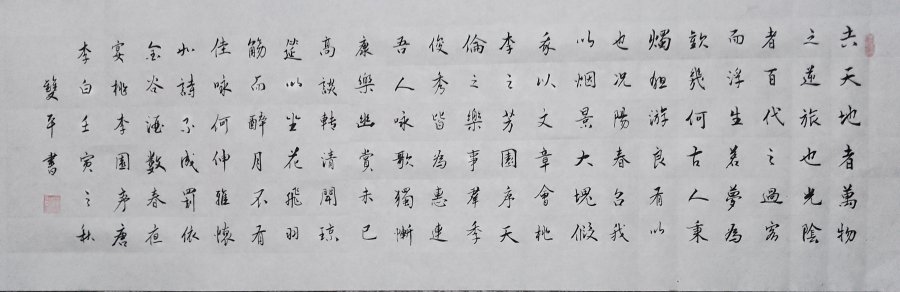 夫天地者萬物
之逆旅也光陰
者百代之過客
而浮生若夢為
歡幾何古人秉
燭夜游良有以
也况陽春召我
以烟景大塊假
我以文章會桃
李之芳園序天
倫之樂事羣季
俊秀皆為惠連
吾人咏歌獨慚
康樂幽賞未已
高談轉清開瓊
筵以坐花飛羽
觴而醉月不有
佳咏何伸雅懷
如詩不成罰依
金谷酒數春夜
宴桃李園序唐
李白壬寅之秋
雙平書